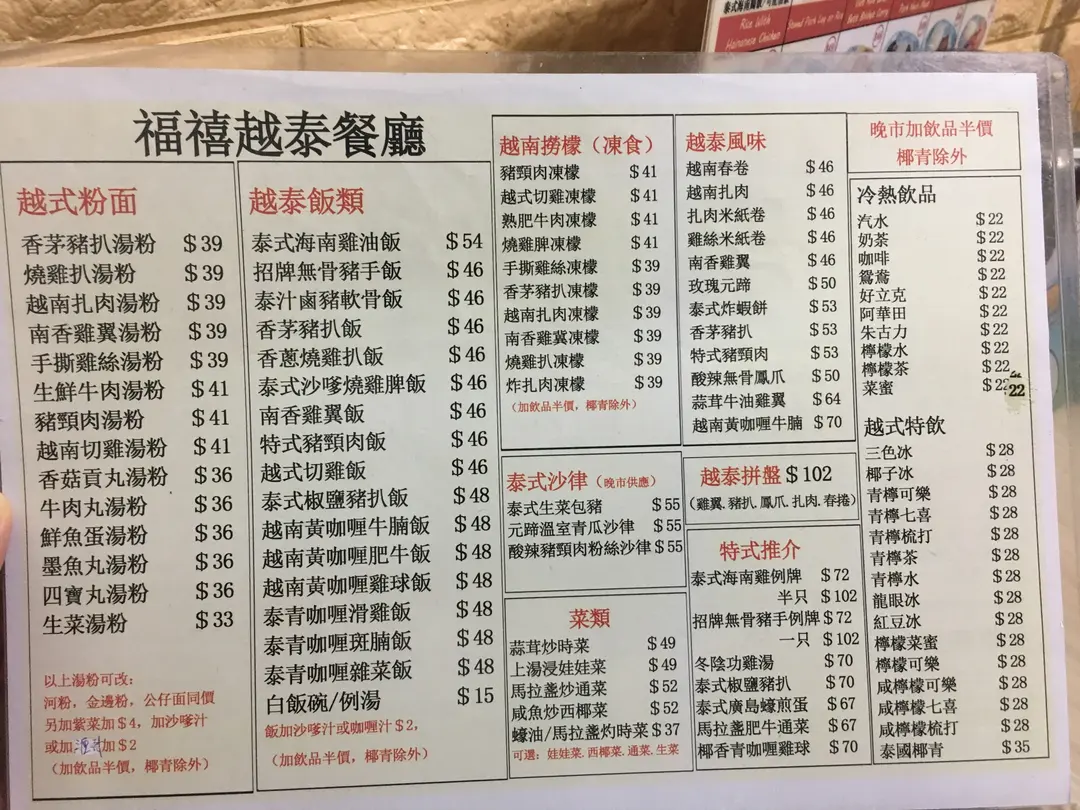 泰式海南雞飯/可配油飯
Rice With
Hainanese Chicken
福禧越泰餐廳
越式粉面
香茅豬扒湯粉 $39
燒雞扒湯粉 $39
越南扎肉湯粉 $39
南香雞翼湯粉 $39
手撕雞絲湯粉 $39
生鮮牛肉湯粉 $41
豬頸肉湯粉 $41
越南切雞湯粉 $41
香菇貢丸湯粉 $36
牛肉丸湯粉 $36
鮮魚蛋湯粉 $36
墨魚丸湯粉 $36
四寶丸湯粉 $36
生菜湯粉 $33
以上湯粉可改:
河粉，金邊粉，公仔面同價
另加紫菜加$4，加沙爹汁
或加 加$2
（加飲品半價，椰青除外）
越泰飯類
泰式海南雞油飯 $54
招牌無骨豬手飯 $46
泰汁鹵豬軟骨飯 $46
香茅豬扒飯 $46
香蔥燒雞扒飯 $46
泰式沙爹燒雞脾飯 $46
南香雞翼飯 $46
特式豬頸肉飯 $46
越式切雞飯 $46
泰式椒鹽豬扒飯 $48
越南黃咖喱牛腩飯 $48
越南黃咖喱肥牛飯 $48
越南黃咖喱雞球飯 $48
泰青咖喱滑雞飯 $48
泰青咖喱斑腩飯 $48
泰青咖喱雜菜飯 $48
白飯碗/例湯 $15
飯加沙爹汁或咖喱汁$2，
（加飲品半價，椰青除外）
越南撈檬（凍食）
豬頸肉凍檬 $41
越式切雞凍檬 $41
熟肥牛肉凍檬 $41
燒雞脾凍檬 $41
手撕雞絲凍檬 $39
香茅豬扒凍檬 $39
越南扎肉凍檬 $39
南香雞冀凍檬 $39
燒雞扒凍檬 $39
炸扎肉凍檬 $39
（加飲品半價，椰青除外）
泰式沙律（晚市供應）
泰式生菜包豬 $55
元蹄溫室青瓜沙律 $55
酸辣豬頸肉粉絲沙律 $55
菜類
蒜茸炒時菜 $49
上湯浸娃娃菜 $49
馬拉盞炒通菜 $52
咸魚炒西椰菜 $52
蠔油/馬拉盞灼時菜 $37
可選：娃娃菜.西椰菜.通菜.生菜
越泰風味
越南春卷 $46
越南扎肉 $46
扎肉米紙卷 $46
雞絲米紙卷 $46
南香雞翼 $46
玫瑰元蹄 $50
泰式炸蝦餅 $53
香茅豬扒 $53
特式豬頸肉 $53
酸辣無骨鳳爪 $50
蒜茸牛油雞翼 $64
越南黃咖喱牛腩 $70
越泰拼盤 $102
（雞翼.豬扒.鳳爪.扎肉.春捲）
特式推介
泰式海南雞例牌 $72
半只 $102
招牌無骨豬手例牌 $72
一只 $102
冬陰功雞湯 $70
泰式椒鹽豬扒 $70
泰式廣島蠔煎蛋 $67
馬拉盞肥牛通菜 $67
椰香青咖喱雞球 $70
晚市加飲品半價
椰青除外
冷熱飲品
汽水 $22
奶茶 $22
咖啡 $22
鴛鴦 $22
好立克 $22
阿華田 $22
朱古力 $22
檸檬水 $22
檸檬茶 $22
菜蜜 $22
22
越式特飲
三色冰 $28
椰子冰 $28
青檸可樂 $28
青檸七喜 $28
青檸梳打 $28
青檸茶 $28
青檸水 $28
龍眼冰 $28
紅豆冰 $28
檸檬菜蜜 $28
檸檬可樂 $28
咸檸檬可樂 $28
咸檸檬七喜 $28
咸檸檬梳打 $28
泰國椰青 $35